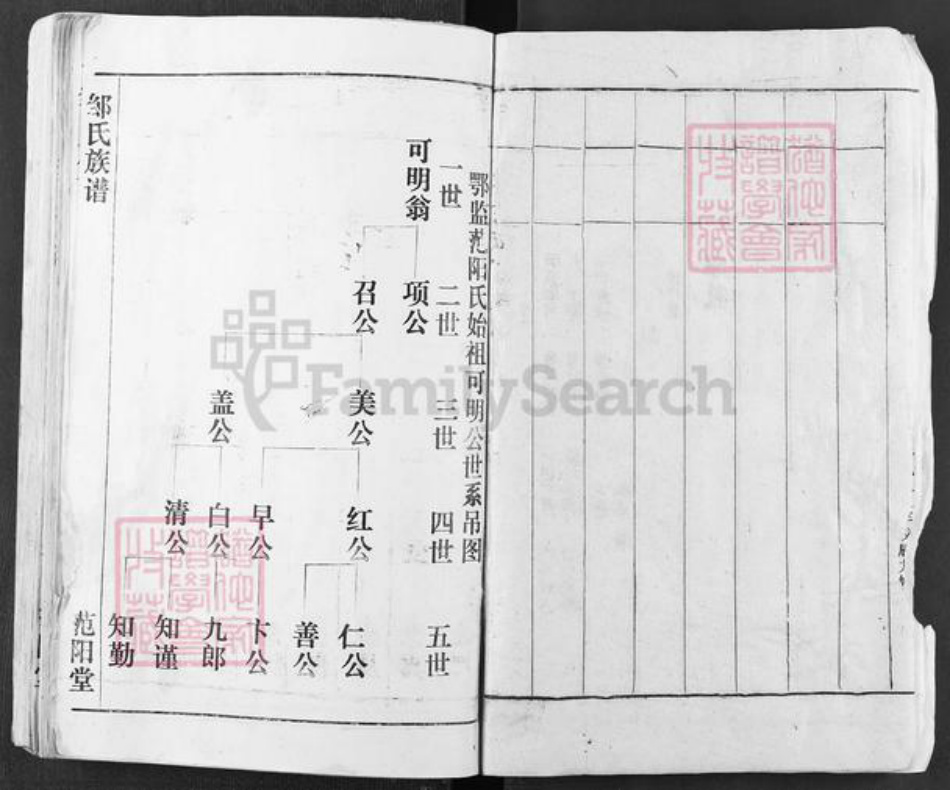 鄂监范阳氏始祖可明公世系吊图
一世
二世
三世
四世
五世
可明翁
项公
召公
美公
盖公
红公
早公
白公
清公
仁公
善公
卞公
九郎
知谨
知勤
邹氏族谱
范阳堂
FamilySearch